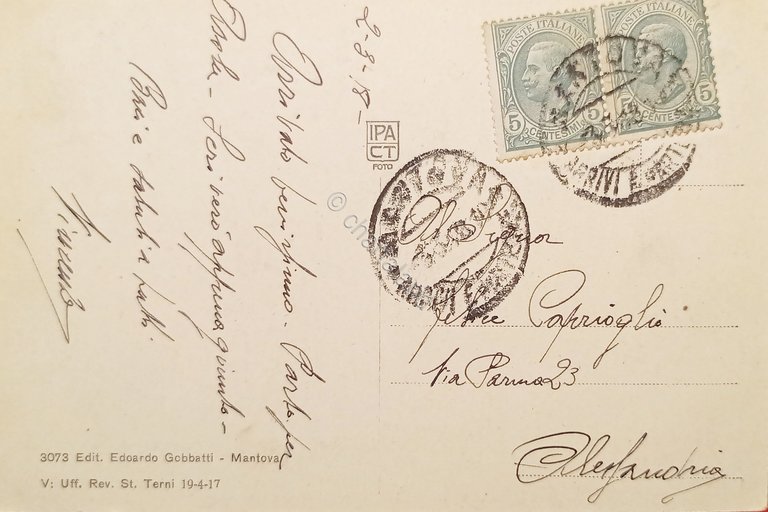 2-8-18-
Arrivato benissimo - Parto per
- Scriverò appena giunto -
Baci e saluti a tutti
POSTE ITALIANE
5 CENTESIMI 5
POSTE ITALIANE
CENTESIMI 5
MANTOVA
ARRIVI E PARTENZE
MANTOVA
IPA
CT
FOTO
Al Signor
Felice Caprioglio
Via Parma 23
Alessandria
3073 Edit. Edoardo Gobbatti - Mantova
V: Uff. Rev. St. Terni 19-4-17